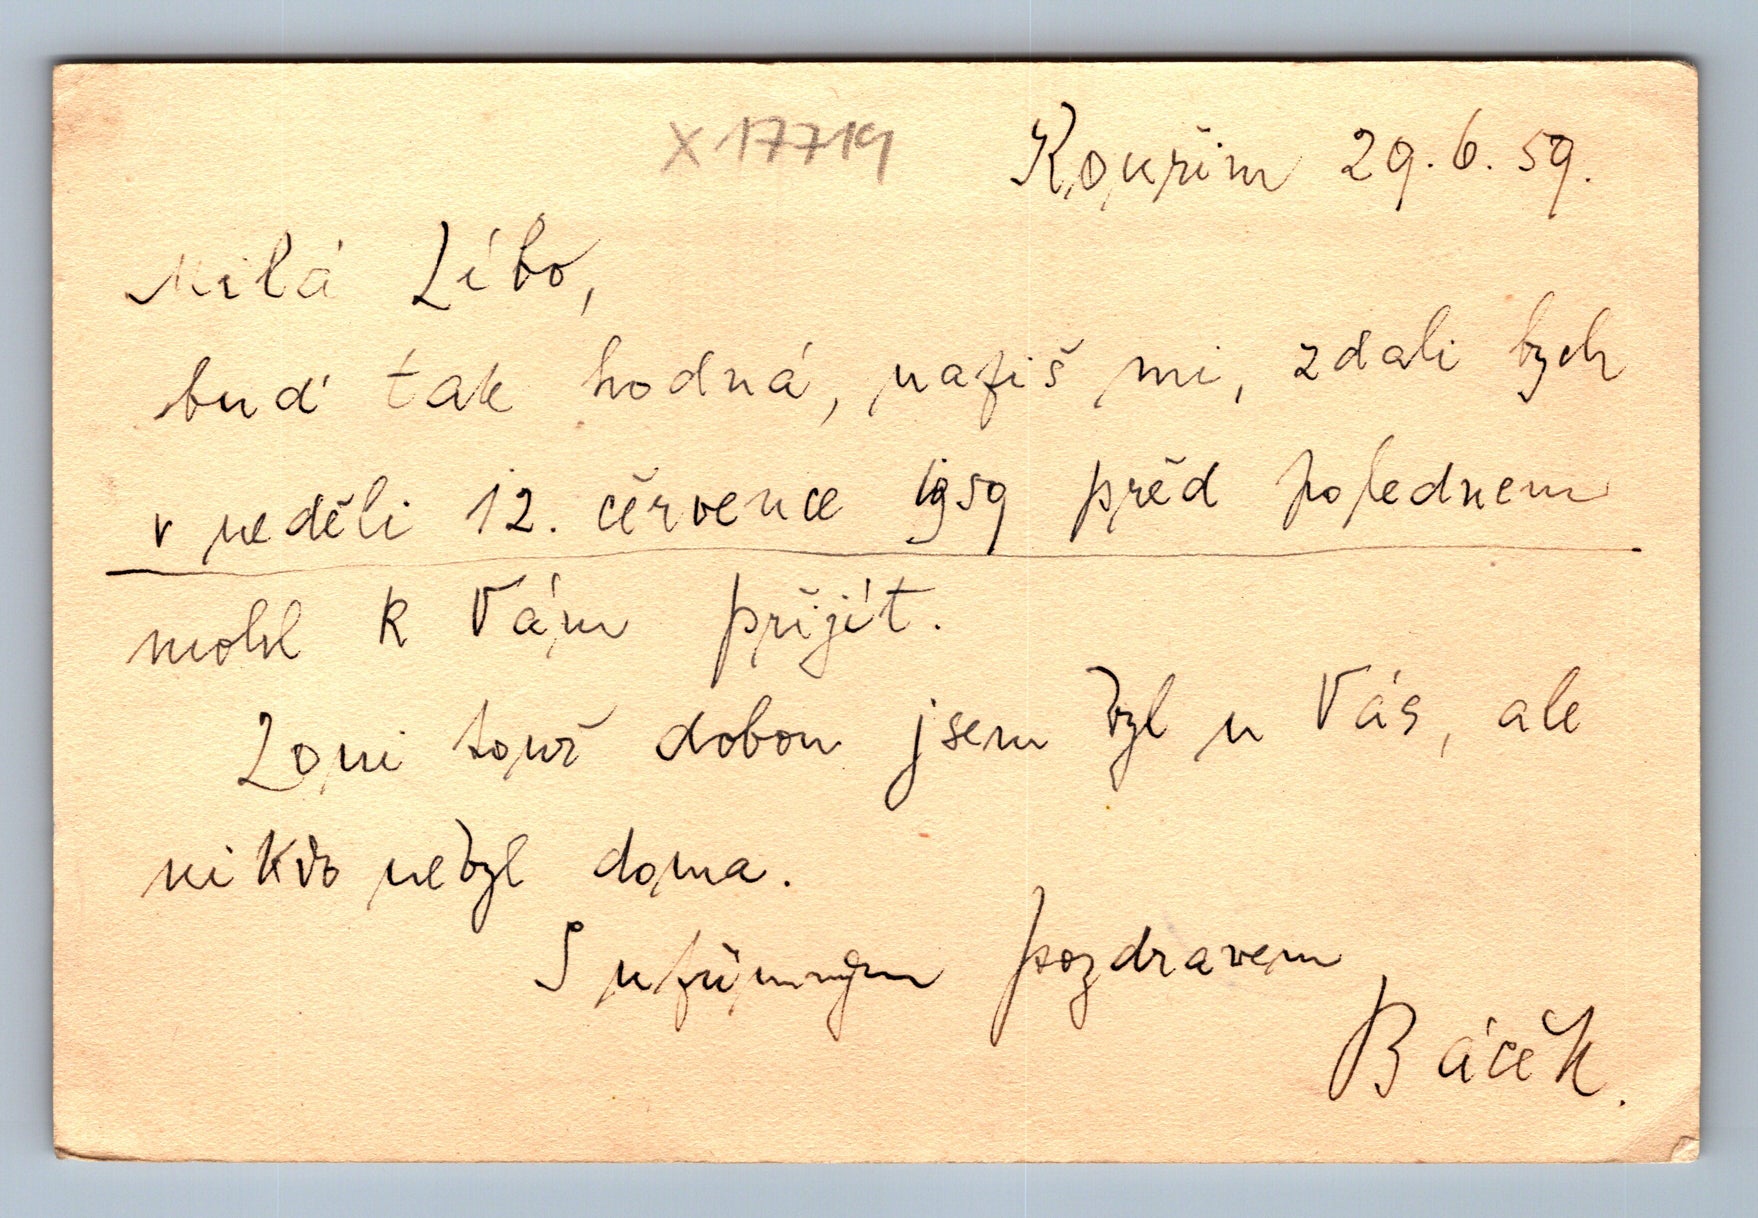 X 17719
Kouřim 29. 6. 59.
Milá Líbo,
buď tak hodná, napiš mi, zdali bych
v neděli 12. července 1959 před polednem
mohl k Vám přijít.
Loni touž dobou jsem byl u Vás, ale
nikdo nebyl doma.
S upřímným pozdravem
Báček.